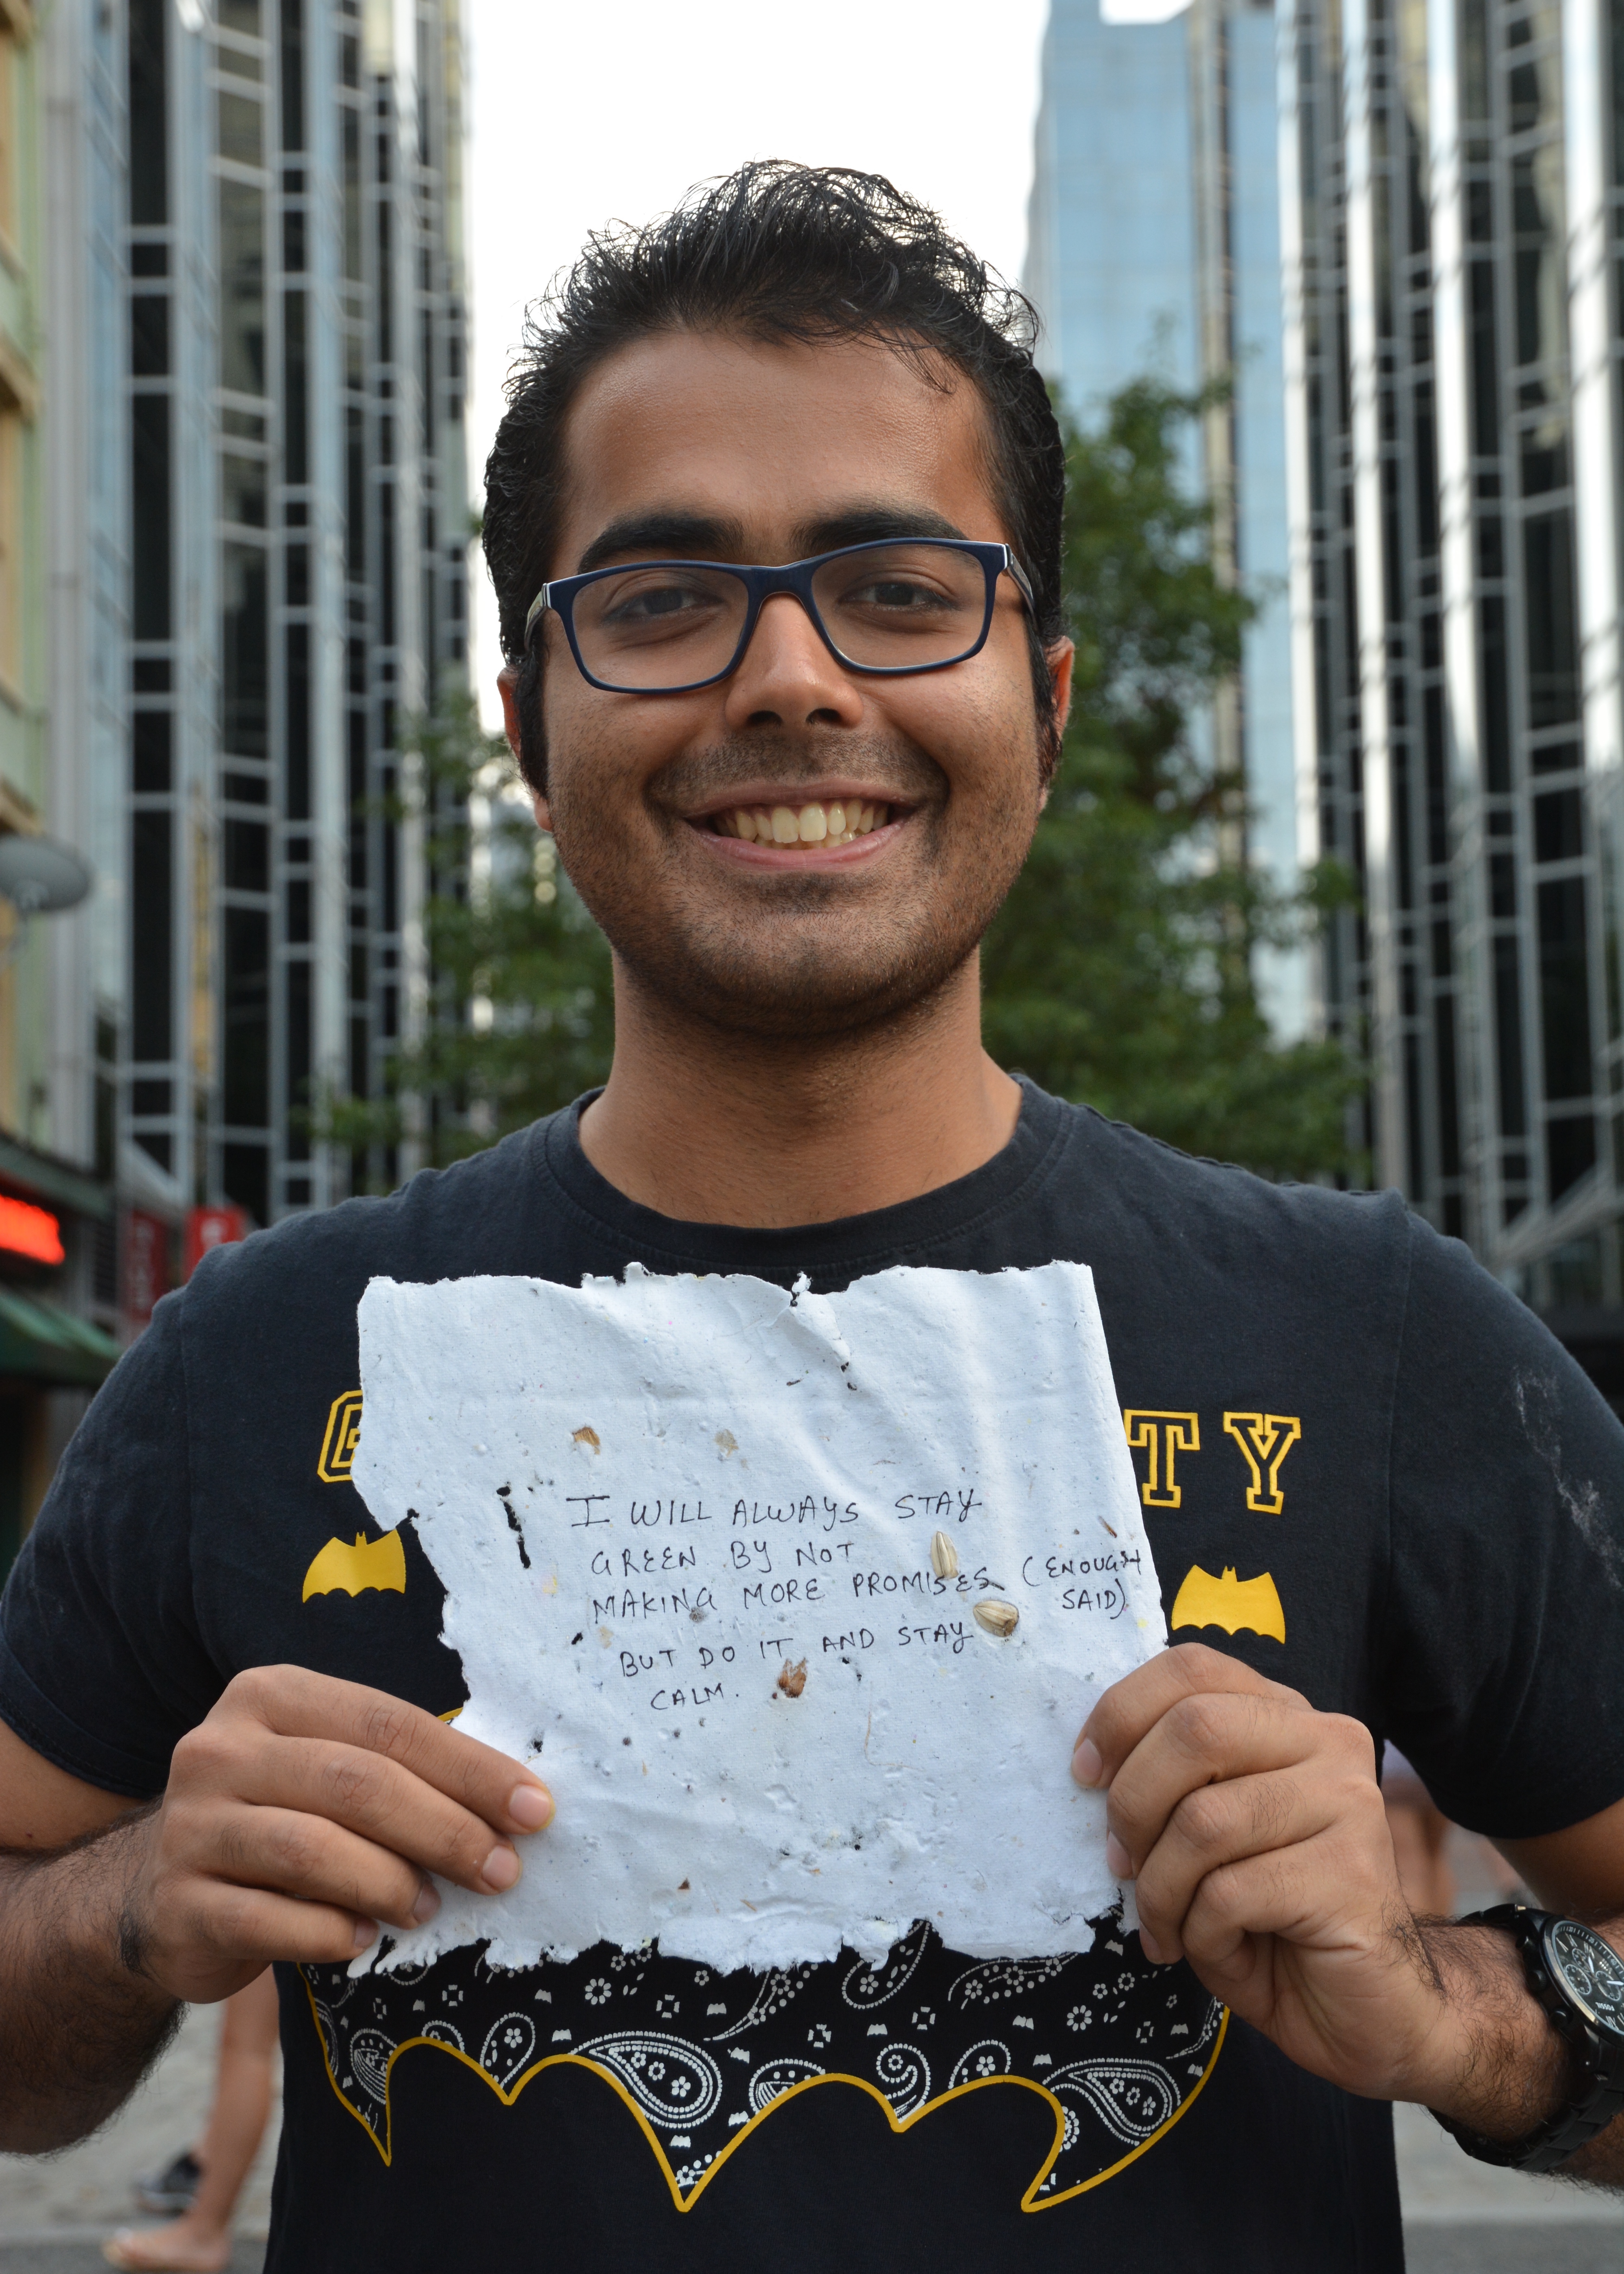 G TY
I WILL ALWAYS STAY
GREEN BY NOT
MAKING MORE PROMISES (ENOUGH
SAID)
BUT DO IT AND STAY
CALM.